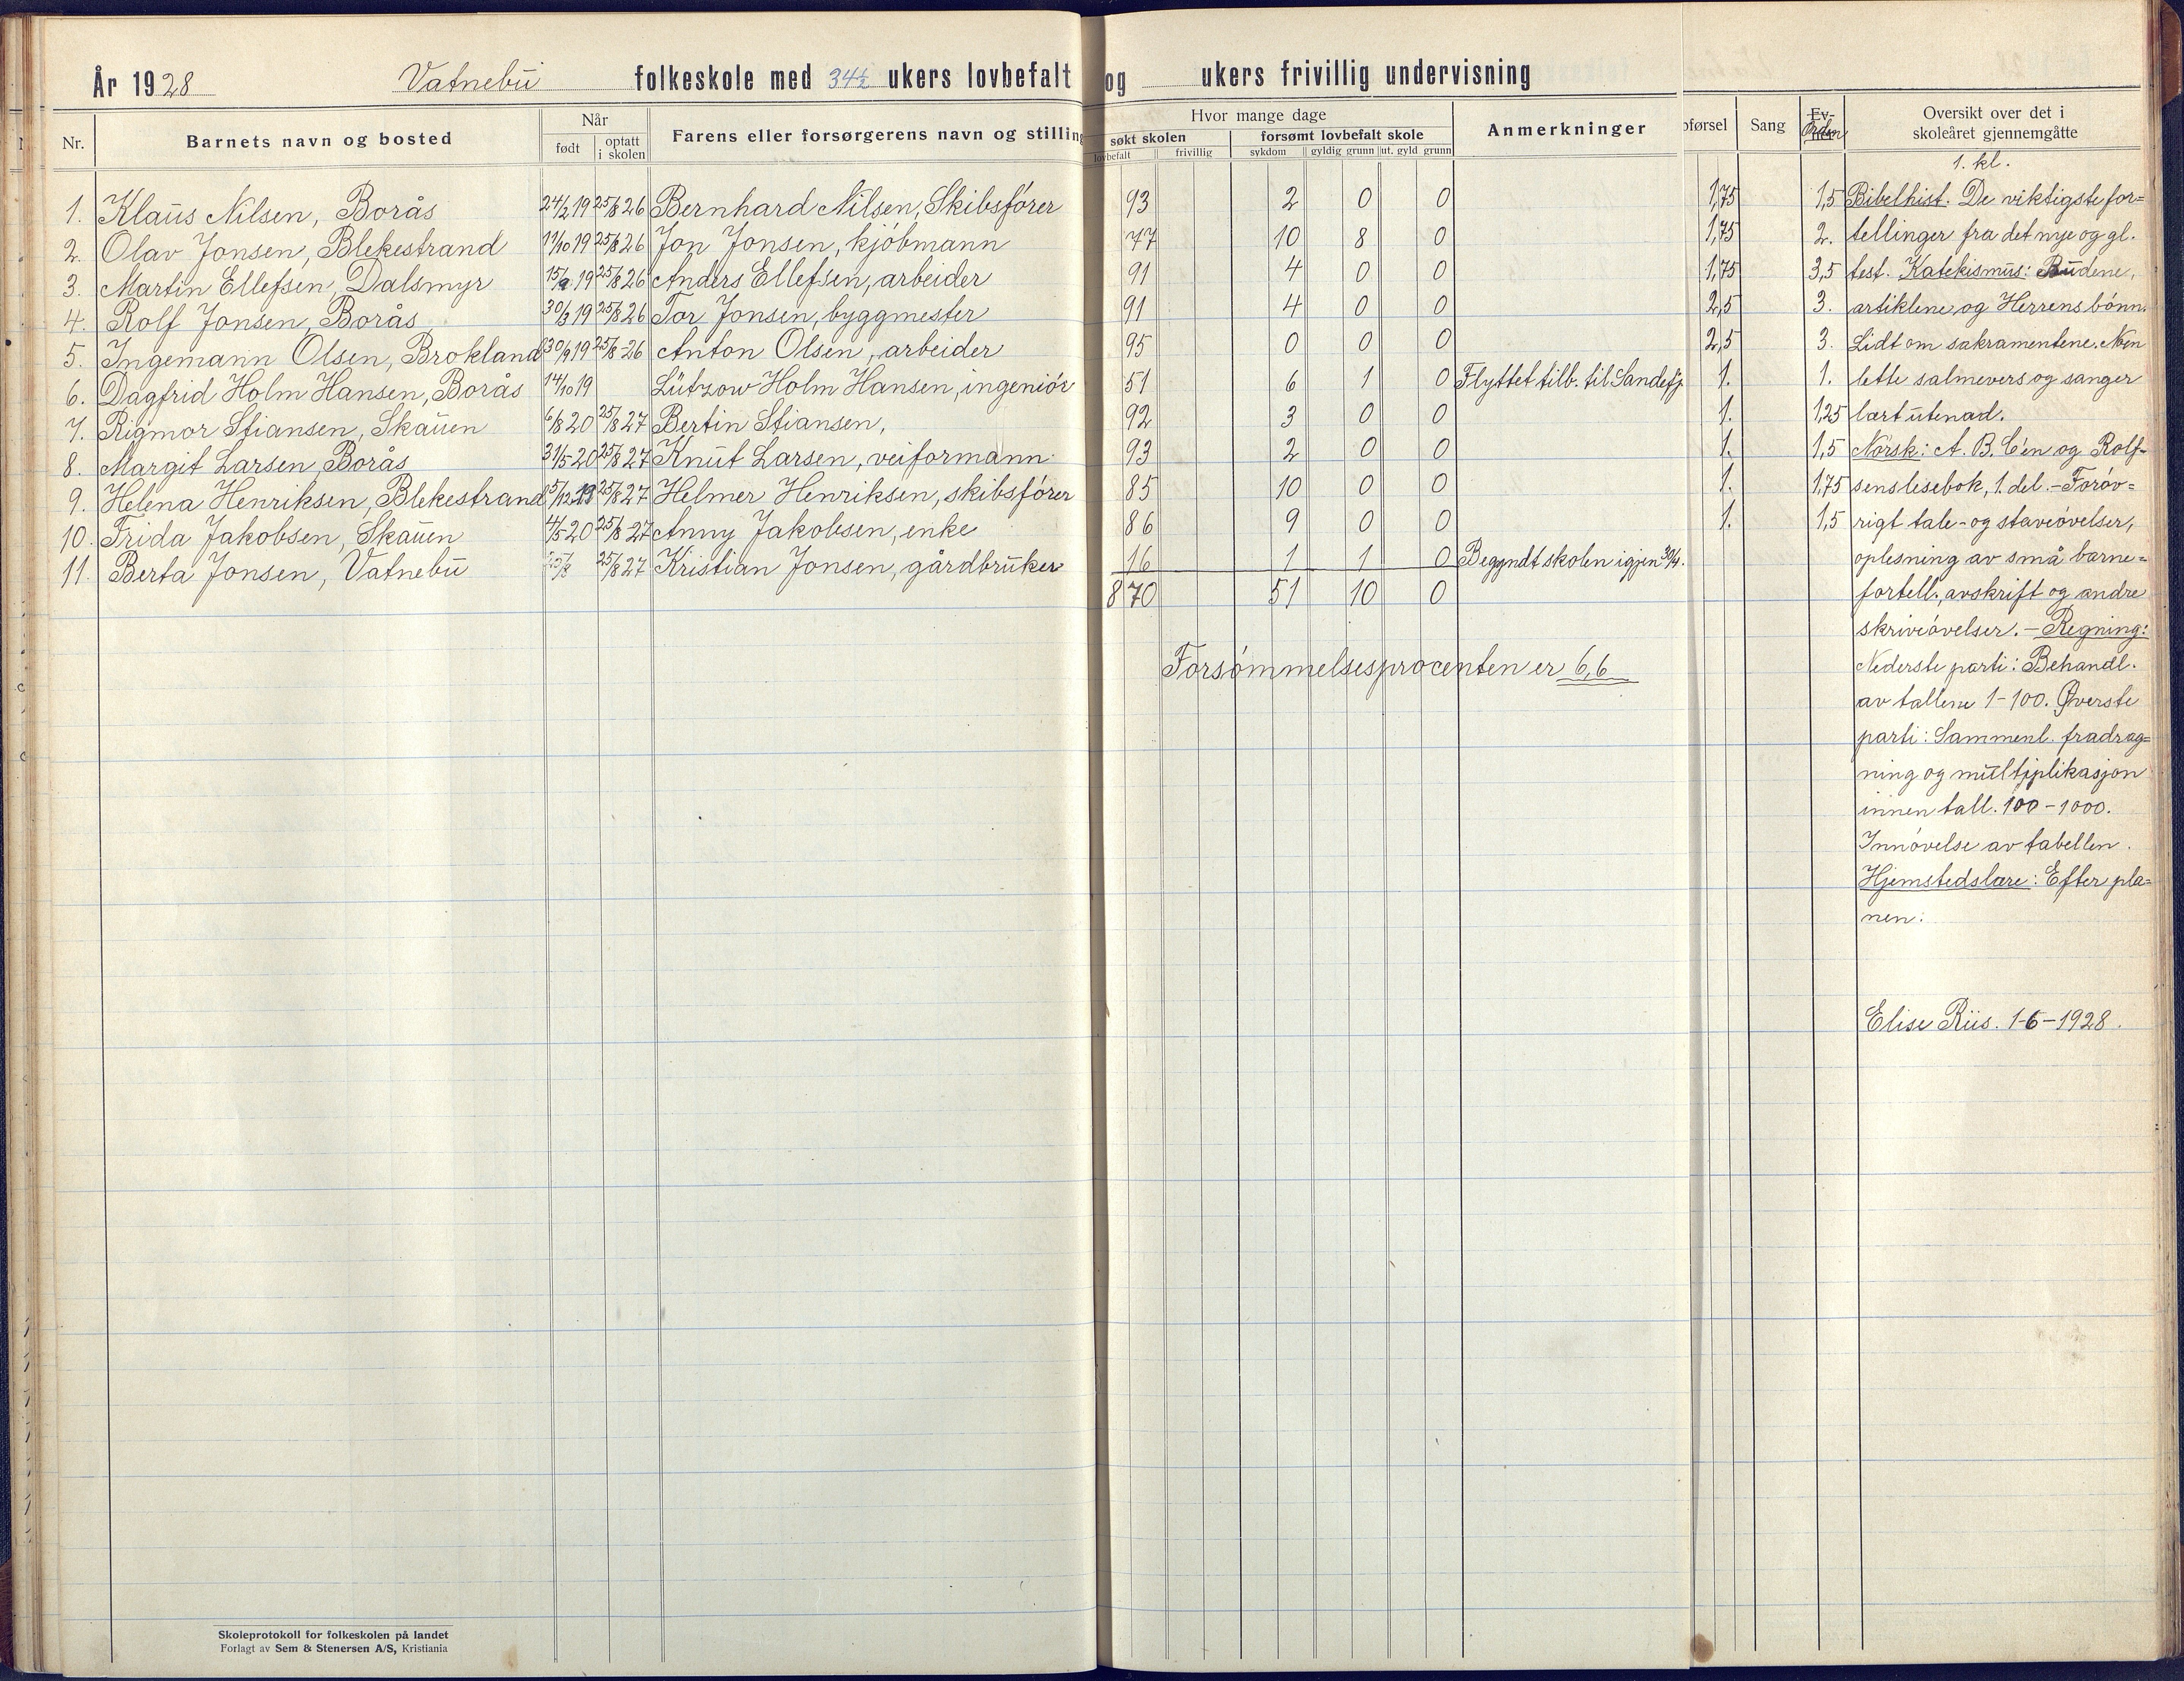 År 1928 Vatnebü folkeskole med 34½ ukers lovbefalt og ukers frivillig undervisning
Nr. Barnets navn og bosted Når født optatt i skolen Farens eller forsørgerens navn og stilling Hvor mange dage søkt skolen lovbefalt frivillig forsømt lovbefalt skole sykdom gyldig grunn ut. gyld grunn Anmerkninger førsel Sang Ev- Orden Oversikt over det i skoleåret gjennemgåtte
1. kl.
1. Klaus Nilsen, Borås 24/2 19 25/8 26 Bernhard Nilsen, Skibsfører 93 2 0 0 1,75 1,5 Bibelhist. De viktigste for=
2. Olav Jonsen, Blekestrand 11/10 19 25/8 26 Jon Jonsen, kjøbmann 77 10 8 0 1,75 2. tellinger fra det nye og gl.
3. Martin Ellefsen, Dalsmyr 15/9 19 25/8 26 Anders Ellefsen, arbeider 91 4 0 0 1,75 3,5 test. Katekismus: Budene,
4. Rolf Jonsen, Borås 30/3 19 25/8 26 Tor Jonsen, byggmester 91 4 0 0 2,5 3. artiklene og Herrens bønn.
5. Ingemann Olsen, Brokland 30/9 19 25/8-26 Anton Olsen, arbeider 95 0 0 0 2,5 3. Lidt om sakramentene. Noen
6. Dagfrid Holm Hansen, Borås 14/10 19 Lützow Holm Hansen, ingeniør 51 6 1 0 Flyttet tilb. til Sandefj. 1. 1. lette salmevers og sanger
7. Rigmor Stiansen, Skauen 6/8 20 25/8 27 Bertin Stiansen, 92 3 0 0 1. 1,25 lært utenad.
8. Margit Larsen, Borås 31/5-20 25/8 27 Knut Larsen, veiformann 93 2 0 0 1. 1,5 Norsk: A. B. C'en og Rolf-
9. Helena Henriksen, Blekestrand 25/8 27 Helmer Henriksen, skibsfører 85 10 0 0 1. 1,75 sens lesebok, 1. del. – Forøv=
10. Frida Jakobsen, Skauen 4/5-20 25/8-27 Anny Jakobsen, enke 86 9 0 0 1. 1,5 rigt tale- og staveøvelser,
11. Berta Jonsen, Vatnebu 25/8 27 Kristian Jonsen, gårdbruker 16 1 1 0 Begyndt skolen igjen 30/4. oplesning av små barne=
870 51 10 0 fortell., avskrift og andre
skriveøvelser. – Regning:
Forsømmelsesprocenten er 6,6 Nederste parti: Behandl.
av tallene 1-100. Øverste
parti: Sammenl. fradrag=
ning og multiplikasjon
innen tall. 100-1000.
Innøvelse av tabellen.
Hjemstedslære: Efter pla=
nen.
Elise Riis. 1-6-1928.
Skoleprotokoll for folkeskolen på landet
Forlagt av Sem & Stenersen A/S, Kristiania